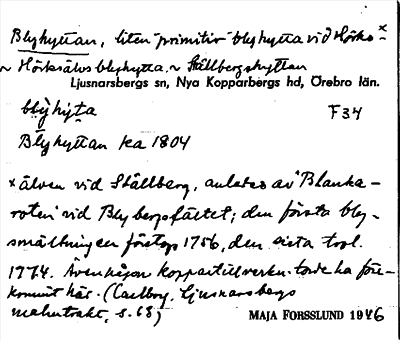 Blyhyttan, liten "primitiv" blyhytta vid Hörks- x
~ Hörksälvs blyhytta, ~ Ställbergshyttan
Ljusnarsbergs sn, Nya Kopparbergs hd, Örebro län.
blỳhỳta F34
Blyhyttan ka 1804
x älven vid Ställberg, anlades av "Blanka-
roten" vid Blybergsfältet; den första bly-
smältningen företogs 1756, den sista trol.
1774. Även någon koppartillverkn. torde ha före-
kommit här. (Carlborg, Ljusnarsbergs
malmtrakt, s. 68)
MAJA FORSSLUND 1946